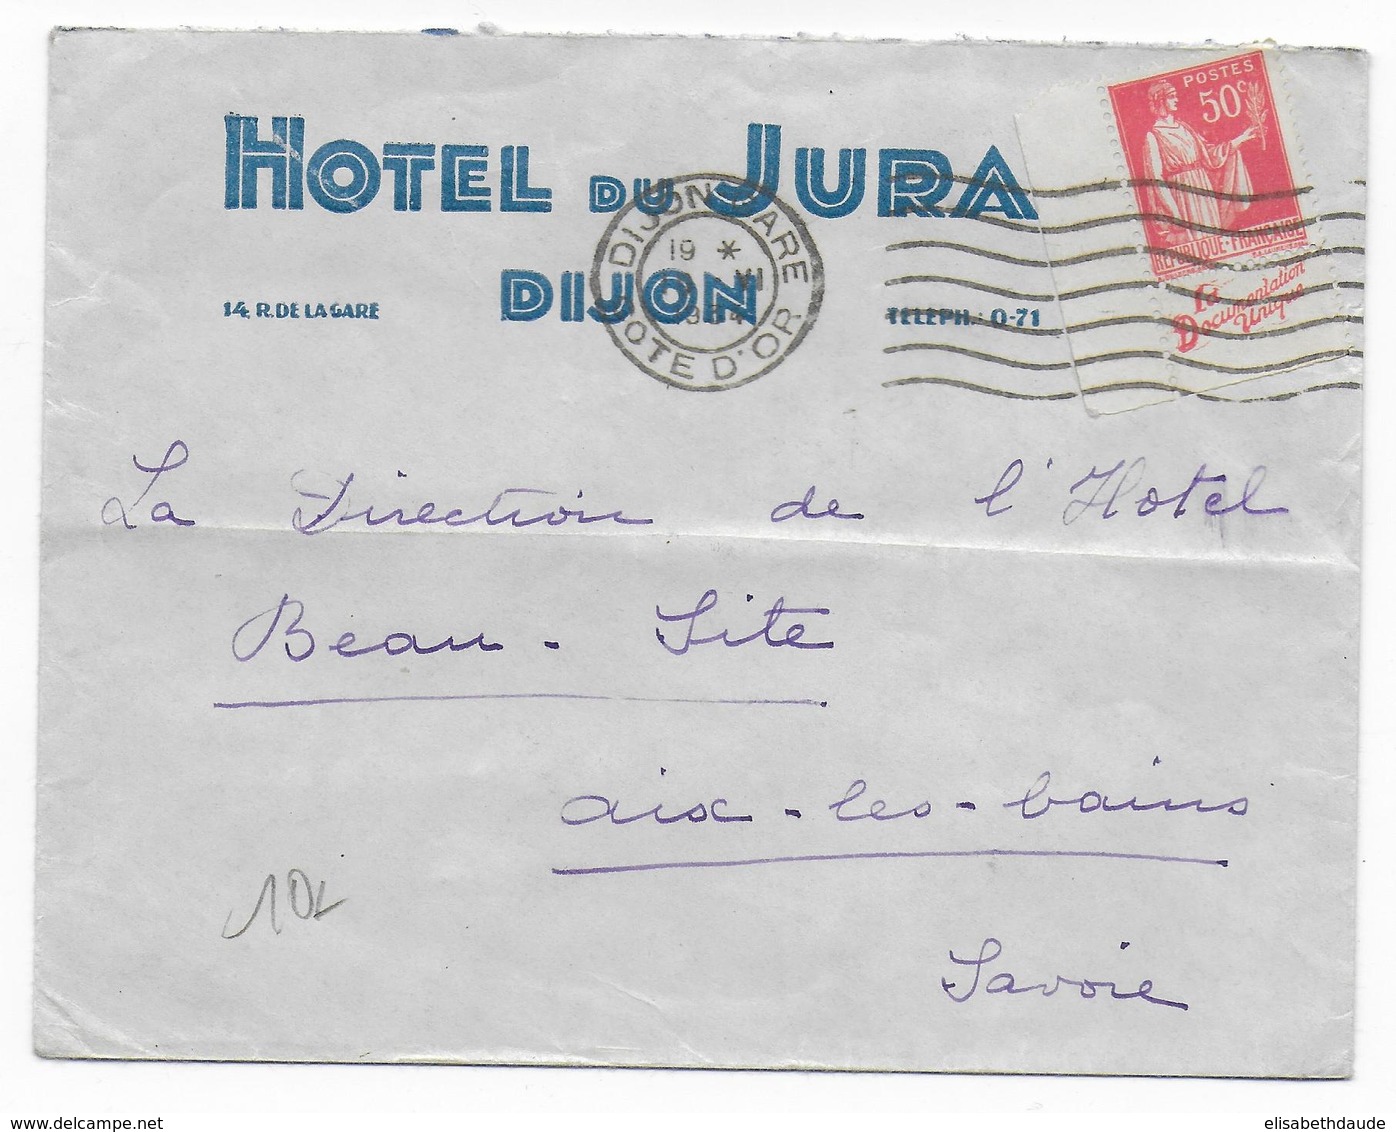 HOTEL DU JURA
DIJON
14, R. DE LA GARE
TELEPH.: 0-71
DIJON GARE
19 *
VI
1934
COTE D'OR
POSTES
50c
REPUBLIQUE·FRANÇAISE
La
Documentation
Unique
La Direction de l'Hotel
Beau-Site
aix-les-bains
Savoie
elisabethdaude